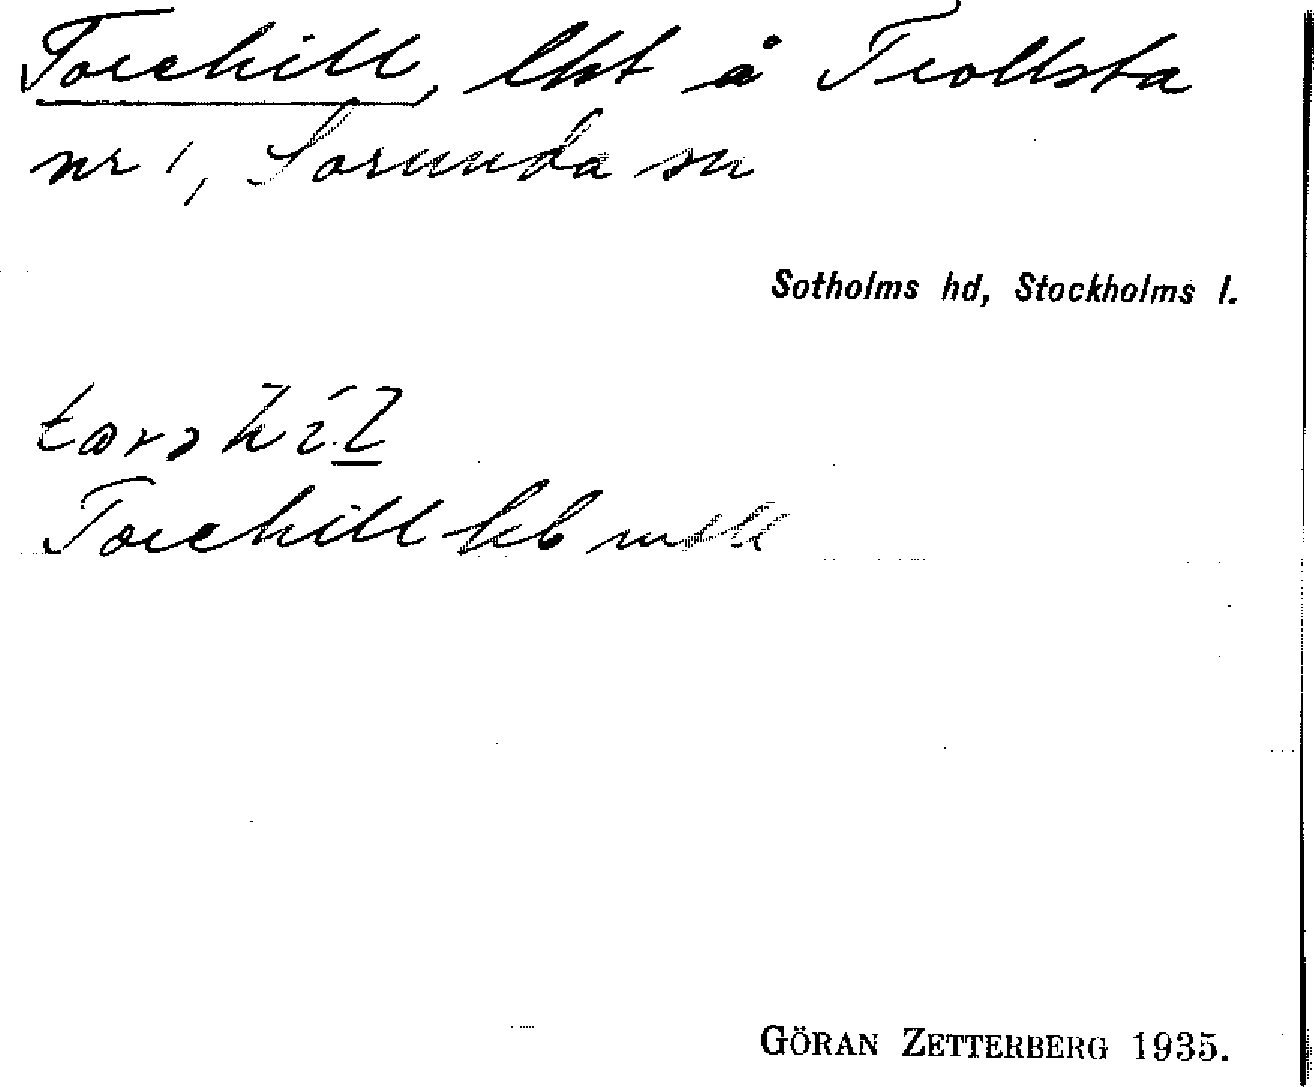 Torehill, lht å Trollsta
nr 1, Sorunda sn
Sotholms hd, Stockholms l.
Torehill
GÖRAN ZETTERBERG 1935.